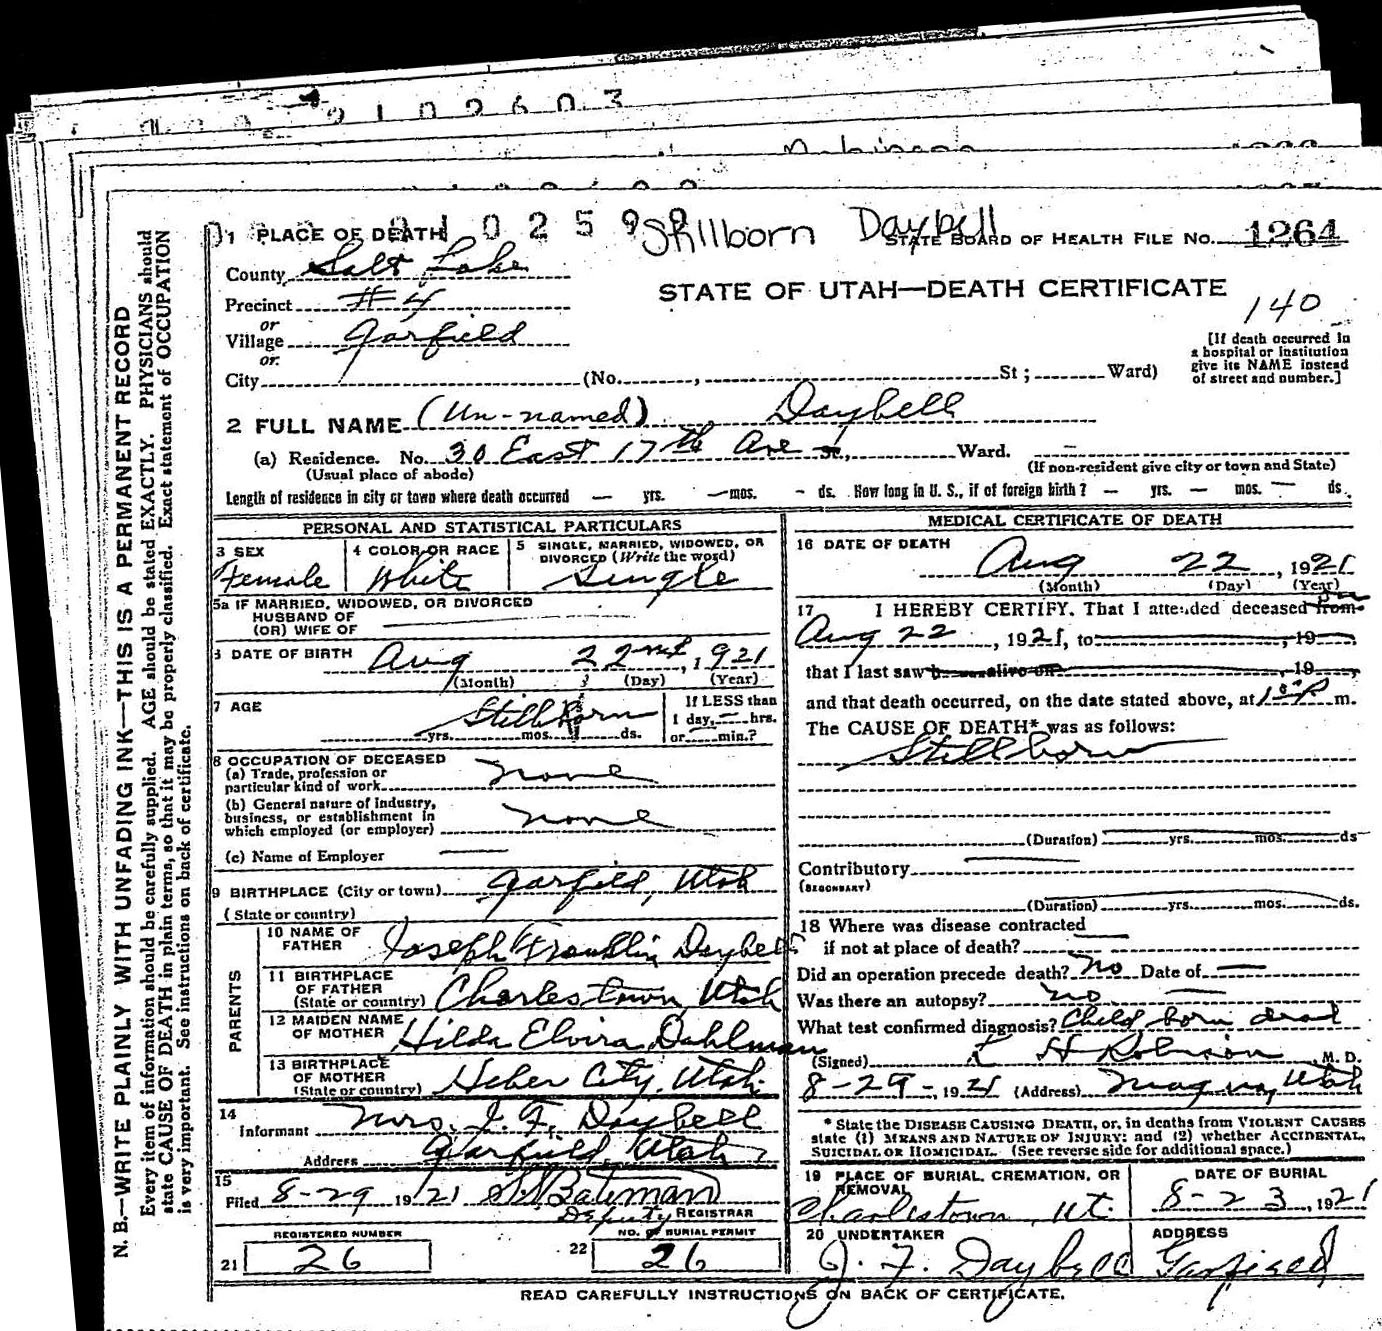 2102603
N. B.—WRITE PLAINLY WITH UNFADING INK—THIS IS A PERMANENT RECORD
Every item of information should be carefully supplied. AGE should be stated EXACTLY. PHYSICIANS should
state CAUSE OF DEATH in plain terms, so that it may be properly classified. Exact statement of OCCUPATION
is very important. See instructions on back of certificate.
Stillborn Daybell
1 PLACE OF DEATH STATE BOARD OF HEALTH FILE NO. 1264
County Salt Lake
STATE OF UTAH—DEATH CERTIFICATE
140
Precinct #4
or
Village Garfield
or
City (No. , St ; Ward)
[If death occurred in
a hospital or institution
give its NAME instead
of street and number.]
2 FULL NAME (Un-named) Daybell
(a) Residence. No. 30 East 17th Ave St., Ward.
(Usual place of abode) (If non-resident give city or town and State)
Length of residence in city or town where death occurred — yrs. — mos. - ds. How long in U. S., if of foreign birth? — yrs. — mos. — ds.
PERSONAL AND STATISTICAL PARTICULARS
3 SEX
Female
4 COLOR OR RACE
White
5 SINGLE, MARRIED, WIDOWED, OR
DIVORCED (Write the word)
Single
5a IF MARRIED, WIDOWED, OR DIVORCED
HUSBAND OF
(OR) WIFE OF
6 DATE OF BIRTH Aug 22nd, 1921
(Month) (Day) (Year)
7 AGE
Stillborn
yrs. mos. ds.
If LESS than
1 day, — hrs.
or min.?
8 OCCUPATION OF DECEASED
(a) Trade, profession or
particular kind of work none
(b) General nature of industry,
business, or establishment in
which employed (or employer) none
(c) Name of Employer —
9 BIRTHPLACE (City or town) Garfield, Utah
(State or country)
PARENTS
10 NAME OF
FATHER Joseph Franklin Daybell
11 BIRTHPLACE
OF FATHER
(State or country) Charlestown, Utah
12 MAIDEN NAME
OF MOTHER Hilda Elvira Dahlman
13 BIRTHPLACE
OF MOTHER
(State or country) Heber City, Utah.
14
Informant Mrs. J. F. Daybell
Address Garfield, Utah
15
Filed 8-29 1921 Bateman
Deputy REGISTRAR
REGISTERED NUMBER
21 26
NO. OF BURIAL PERMIT
22 26
MEDICAL CERTIFICATE OF DEATH
16 DATE OF DEATH
Aug 22, 1921
(Month) (Day) (Year)
17 I HEREBY CERTIFY, That I attended deceased from on
Aug 22, 1921, to , 19
that I last saw h alive on , 19
and that death occurred, on the date stated above, at m.
The CAUSE OF DEATH* was as follows:
Stillborn
(Duration) yrs. mos. ds
Contributory
(SECONDARY)
(Duration) yrs. mos. ds.
18 Where was disease contracted
if not at place of death?
Did an operation precede death? No Date of —
Was there an autopsy? no —
What test confirmed diagnosis? Child born dead
(Signed) H Robinson, M. D.
8-29-, 1921 (Address) Magna, Utah
* State the DISEASE CAUSING DEATH, or, in deaths from VIOLENT CAUSES
state (1) MEANS AND NATURE OF INJURY; and (2) whether ACCIDENTAL,
SUICIDAL OR HOMICIDAL. (See reverse side for additional space.)
19 PLACE OF BURIAL, CREMATION, OR
REMOVAL
Charlestown, Ut.
DATE OF BURIAL
8-23, 1921
20 UNDERTAKER
J. F. Daybell
ADDRESS
Garfield
READ CAREFULLY INSTRUCTIONS ON BACK OF CERTIFICATE.